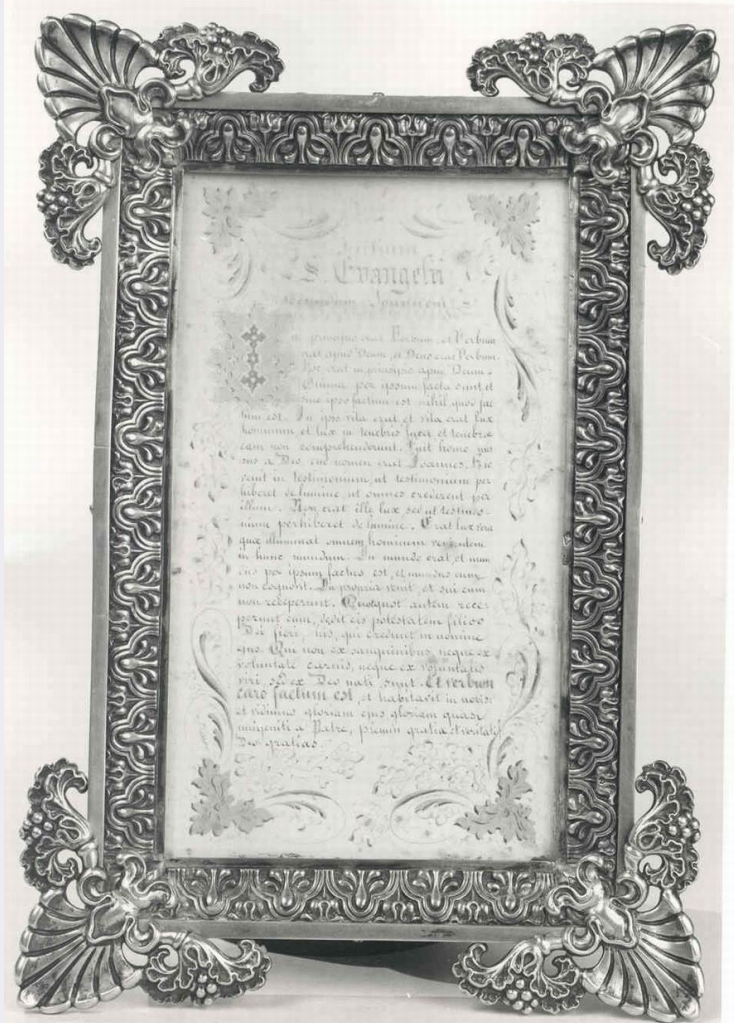 Initium
S. Evangelii
secundum Joannem
In principio erat Verbum, et Verbum
erat apud Deum, et Deus erat Verbum.
Hoc erat in principio apud Deum.
Omnia per ipsum facta sunt, et
sine ipso factum est nihil, quod fac
tum est. In ipso vita erat et vita erat lux
hominum, et lux in tenebris lucet et tenebræ
eam non comprehenderunt. Fuit homo mis
sus a Deo, cui nomen erat Joannes. Hic
venit in testimonium, ut testimonium per
hiberet de lumine, ut omnes crederent per
illum. Non erat ille lux sed ut testimo-
nium perhiberet de lumine. Erat lux vera
quæ illuminat omnem hominem venientem
in hunc mundum. In mundo erat, et mun
dus per ipsum factus est, et mundus eum
non cognovit. In propria venit, et sui eum
non receperunt. Quotquot autem rece-
perunt eum, dedit eis potestatem filios
Dei fieri, his, qui credunt in nomine
ejus. Qui non ex sanguinibus, neque ex
voluntate carnis, neque ex voluntate
viri, sed ex Deo nati sunt. Et verbum
caro factum est, et habitavit in nobis
et vidimus gloriam ejus, gloriam quasi
unigeniti a Patre, plenum gratiæ et veritatis
Deo gratias.